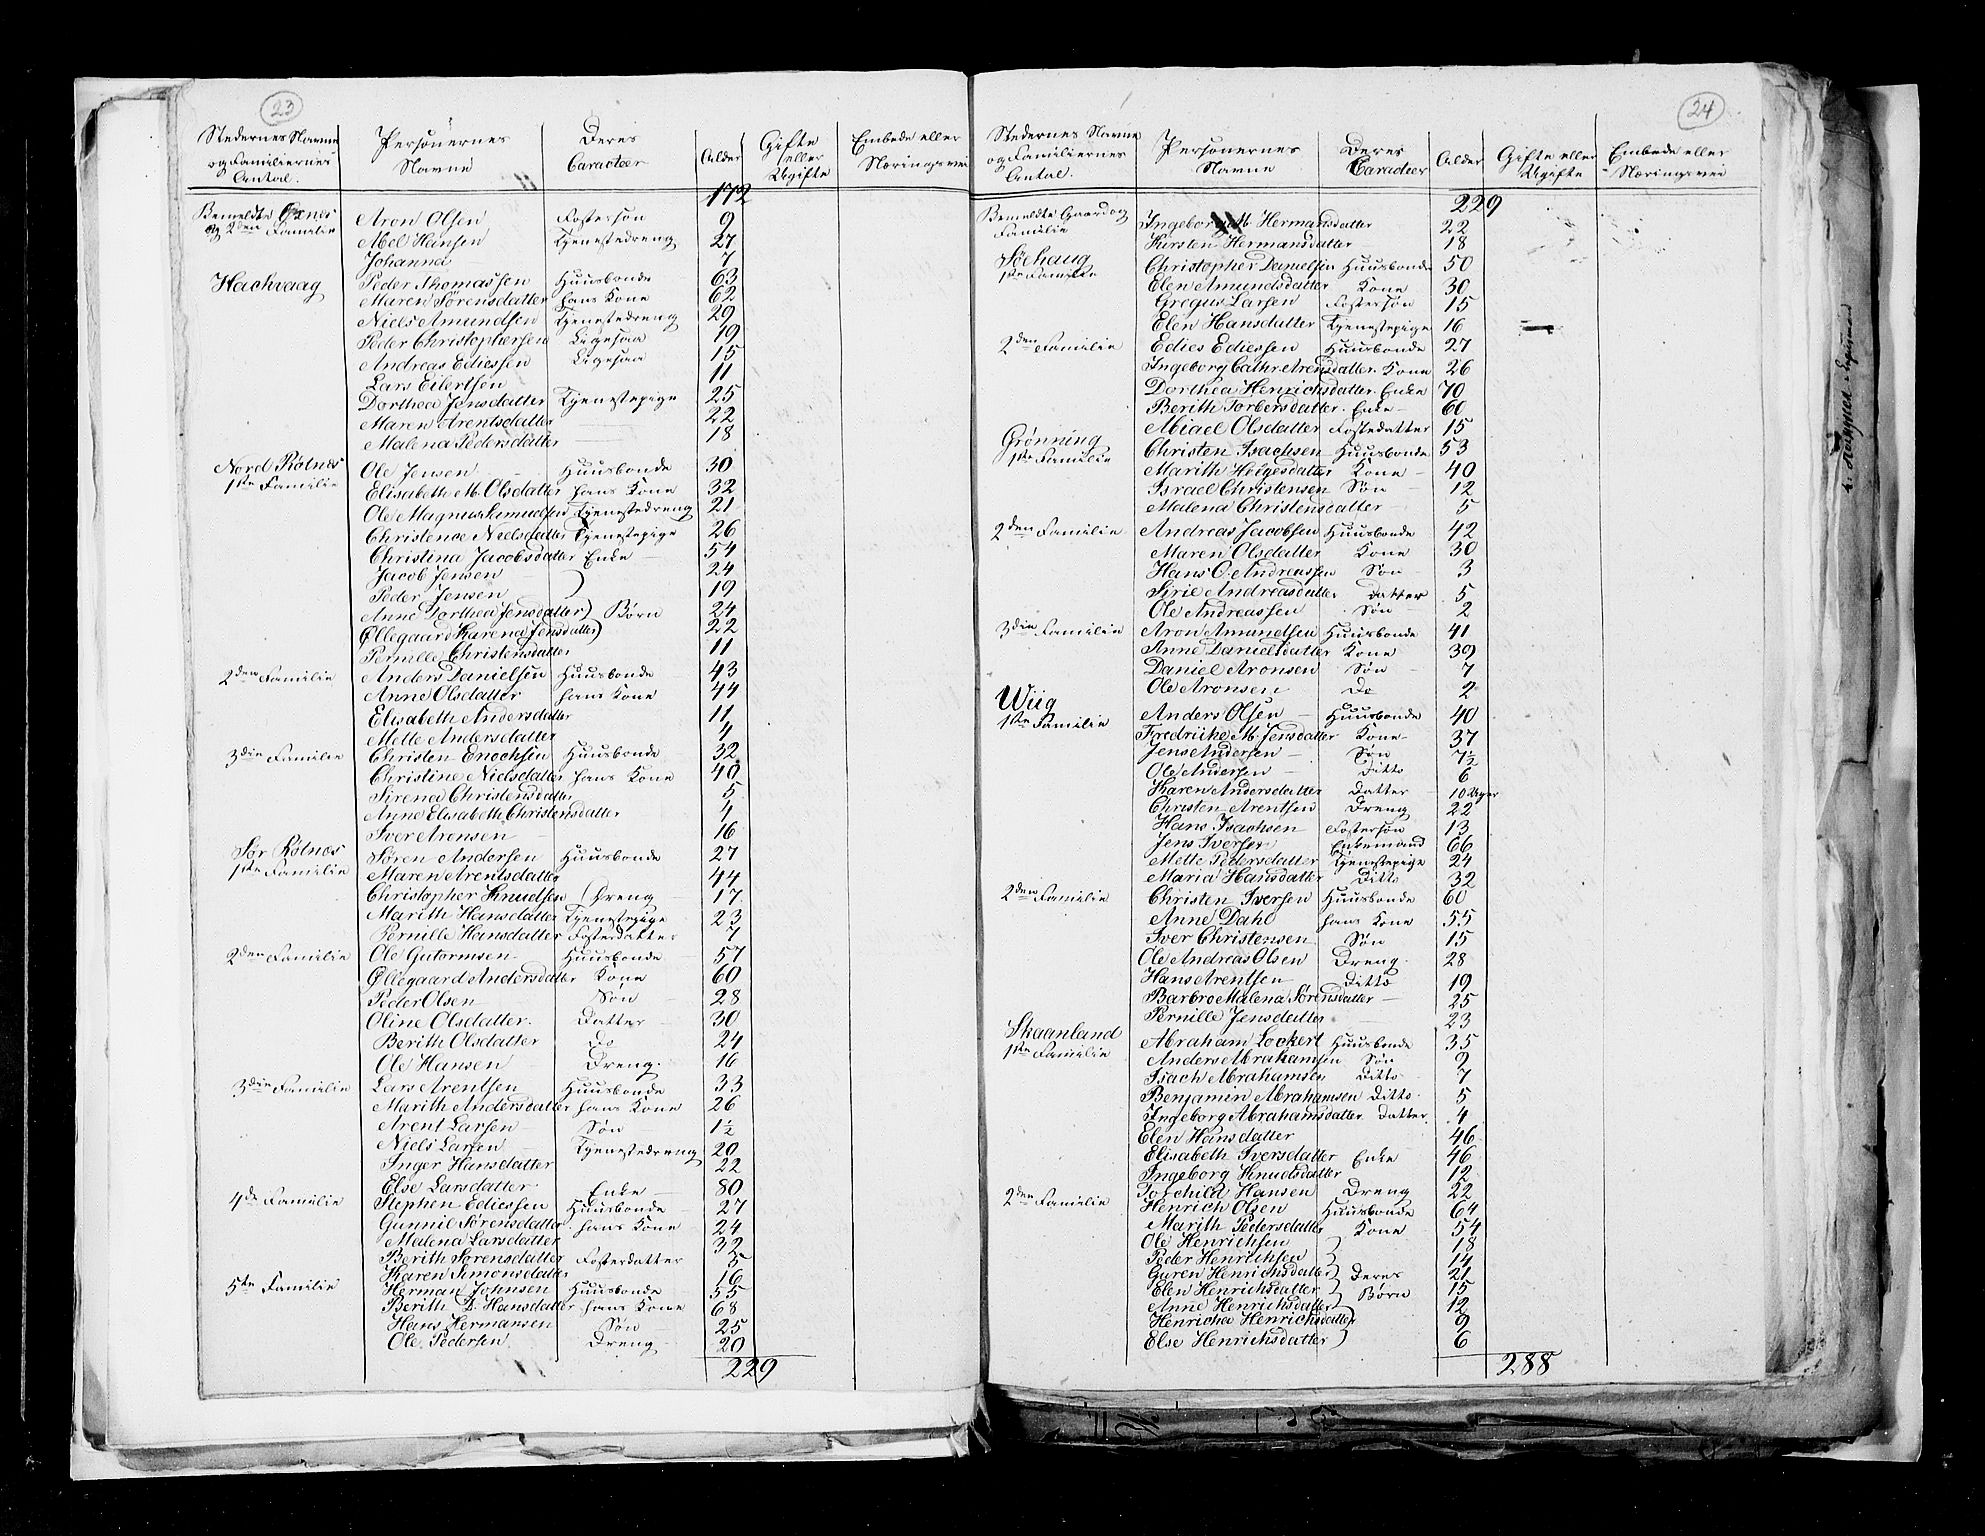 23
Stedernes Navne og Familiernes Antal. | Personernes Navne | Deres Caracteer | Alder | Gifte eller Ugifte | Embede eller Næringsvei
172
Bemeldte Grønes Aron Olsen Fostersøn 9
og 2den Familie Abel Hansen Tjenestedreng 27
Johanna 7
Hachvaag Peder Thomassen Huusbonde 63
Maren Sørensdatter hans Kone 62
Niels Amundsen Tjenestedreng 29
Peder Christophersen Ligesaa 19
Andreas Ediessen Ligesaa 15
Lars Eilertsen 11
Dorthea Jensdatter Tjenestepige 25
Maren Arentsdatter 22
Malena Pedersdatter 18
Nord Rølnes Ole Jensen Huusbonde 30
1ste Familie Elisabeth M. Olsdatter hans Kone 32
Ole Magnus Samuelsen Tjenestedreng 21
Christence Nielsdatter Tjenestepige 26
Christina Jacobsdatter Enke 54
Jacob Jensen 24
Peder Jensen 19
Anne Dorthea Jensdatter Børn 24
Øllegaard Karena Jensdatter 22
Pernille Christensdatter 11
2den Familie Anders Danielsen Huusbonde 43
Anne Olsdatter hans Kone 44
Elisabeth Andersdatter 11
Mette Andersdatter 4
3die Familie Christen Enochsen Huusbonde 32
Christine Nielsdatter hans Kone 40
Sirena Christensdatter 5
Anne Elisabeth Christensdatter 4
Iver Arensen 16
Sør Rølnes Søren Andersen Huusbonde 27
1ste Familie Maren Arentsdatter 44
Christopher Knudsen Dreng 17
Marith Hansdatter Tjenestepige 23
Pernille Hansdatter Fosterdatter 7
2den Familie Ole Gutormsen Huusbonde 57
Øllegaard Andersdatter Kone 60
Peder Olsen Søn 28
Oline Olsdatter. Datter 30
Berith Olsdatter Do 24
Ole Hansen Dreng. 16
3die Familie Lars Arentsen Huusbonde 33
Marith Andersdatter hans Kone 26
Arent Larsen Søn 1½
Niels Larsen Tjenestedreng 20
Inger Hansdatter 22
Else Larsdatter Enke 80
4de Familie Stephen Ediessen Huusbonde 27
Gunnil Sørensdatter. hans Kone 24
Malena Larsdatter 32
Berith Sørensdatter Fosterdatter 5
Karen Simonsdatter 16
5te Familie Herman Johnsen Huusbonde 55
Berith D. Hansdatter hans Kone 68
Hans Hermansen Søn 25
Ole Pedersen. Dreng 20
229
24
Stedernes Navne og Familiernes Antal. | Personernes Navne | Deres Caracteer | Alder | Gifte eller Ugifte | Embede eller Næringsvei
229
Bemeldte Gaard og Ingeborg M Hermansdatter 22
Familie Kirsten Hermansdatter 18
Søehaug Christopher Danielsen Huusbonde 50
1ste Familie Elen Amundsdatter Kone 30
Gregus Larsen Fostersøn 15
Elen Hansdatter Tjenestepige 16
2den Familie Edies Ediessen Huusbonde 27
Ingeborg Cathr. Arensdatter. Kone 26
Dorthea Henrichsdatter. Enke 70
Berith Torbersdatter. Enke 60
Abiael Olsdatter Fostedatter 15
Grønning Christen Isachsen Huusbonde 53
1ste Familie Marith Helgesdatter Kone 40
Israel Christensen Søn 12
Malena Christensdatter 5
2den Familie Andreas Jacobsen Huusbonde 42
Maren Olsdatter Kone 30
Hans O. Andreassen Søn 3
Sirie Andreasdatter Datter 5
Ole Andreassen Søn 2
3die Familie Aron Amundsen Huusbonde 41
Anne Danielsdatter Kone 39
Daniel Aronsen Søn 7
Ole Aronsen Do 2
Wiig Anders Olsen Huusbonde 40
1ste Familie Fredricke M. Jensdatter Kone 37
Jens Andersen Søn 7½
Ole Andersen Ditto 6
Karen Andersdatter Datter 10 Uger
Christen Arentsen Dreng 22
Hans Isachsen Fostersøn 13
Jens Iversen Enkemand 66
Mette Pedersdatter Tjenestepige 24
Maria Hansdatter Ditto 32
2den Familie Christen Iversen Huusbonde 60
Anne Dahl hans Kone 55
Iver Christensen Søn 15
Ole Andreas Olsen Dreng. 28
Hans Arentsen Ditto 19
Barbro Malena Sørensdatter 25
Pernille Jensdatter 23
Skaanland Abraham Lockert Huusbonde 35
1ste Familie Anders Abrahamsen Søn 9
Isach Abrahamsen Ditto 7
Benjamin Abrahamsen Ditto. 5
Ingeborg Abrahamsdatter Datter. 4
Elen Hansdatter 46
Elisabeth Iversdatter Enke 46
Ingeborg Knudsdatter 12
Torchild Hansen Dreng 22
2den Familie Henrich Olsen Huusbonde 64
Marith Pedersdatter Kone 54
Ole Henrichsen 18
Peder Henrichsen 14
Guren Henrichsdatter Deres 21
Elen Henrichsdatter Børn 15
Anne Henrichsdatter 12
Henricha Henrichsdatter 9
Else Henrichsdatter 6
288